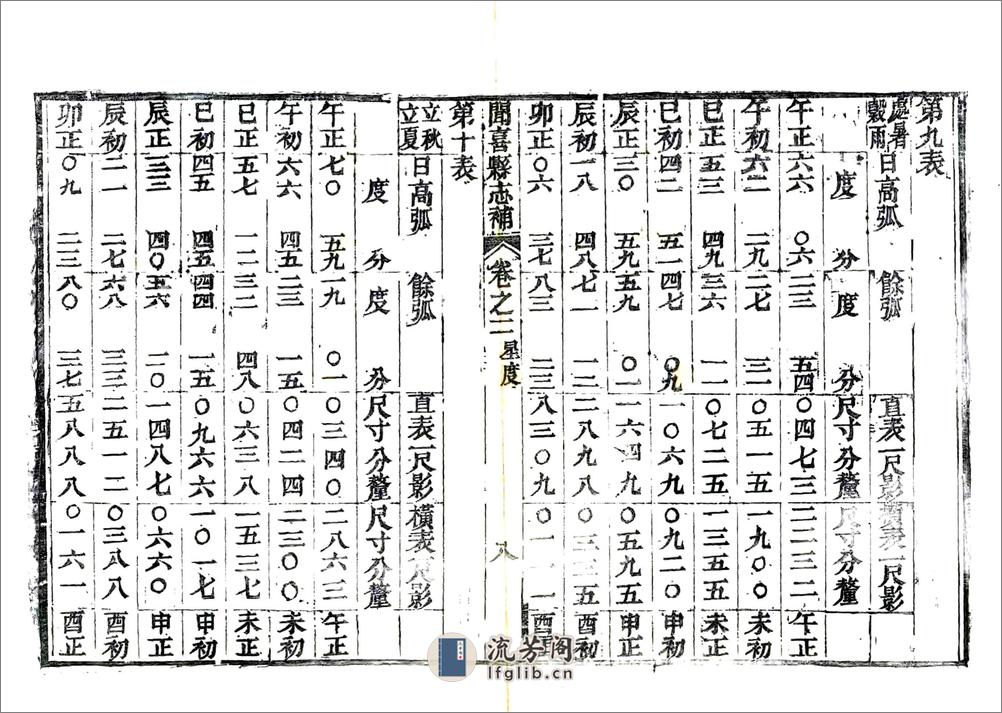 第九表
處暑
穀雨
日高弧 餘弧 直表一尺影 橫表一尺影
度 分 度 分 尺寸分釐 尺寸分釐
午正 六六 〇六 二三 五四 〇四七三 二二三二 午正
午初 六二 二九 二七 三一 〇五一五 一九〇〇 未初
巳正 五三 四九 三六 一一 〇七二五 一三五五 未正
巳初 四二 五一 四七 〇九 一〇六九 〇九二〇 申初
辰正 三〇 五九 五九 〇一 一六四九 〇五九五 申正
辰初 一八 四八 七一 一二 二八九八 〇三三五 酉初
卯正 〇六 三七 八三 二三 八三〇九 〇一一一 酉正
聞喜縣志補 卷之二 星度 八
第十表
立秋
立夏
日高弧 餘弧 直表一尺影 橫表一尺影
度 分 度 分 尺寸分釐 尺寸分釐
午正 七〇 五九 一九 〇一 〇三四〇 二八六三 午正
午初 六六 四五 二三 一五 〇四二四 二三〇〇 未初
巳正 五七 一二 三二 四八 〇六三八 一五三七 未正
巳初 四五 四五 四四 一五 〇九六六 一〇一七 申初
辰正 三三 四〇 五六 二〇 一四八七 〇六六〇 申正
辰初 二一 二七 六八 三三 二五一二 〇三八八 酉初
卯正 〇九 二三 八〇 三七 五八八八 〇一六一 酉正
流芳阁
lfglib.cn